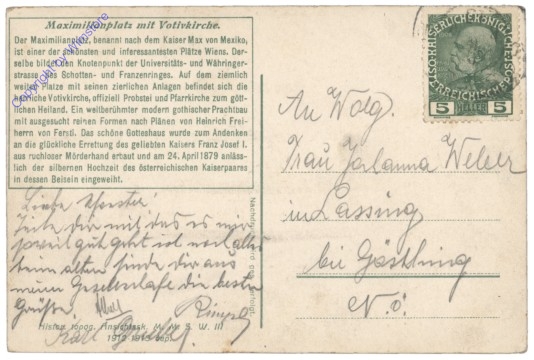 Maximilianplatz mit Votivkirche.
Der Maximilianplatz, benannt nach dem Kaiser Max von Mexiko,
ist einer der schönsten und interessantesten Plätze Wiens. Der-
selbe bildet den Knotenpunkt der Universitäts- und Währinger-
strasse, des Schotten- und Franzenringes. Auf dem ziemlich
weiten Platze mit seinen zierlichen Anlagen befindet sich die
herrliche Votivkirche, offiziell Probstei und Pfarrkirche zum gött-
lichen Heiland. Ein weitberühmter modern gothischer Prachtbau
mit ausgesucht reinen Formen nach Plänen von Heinrich Frei-
herrn von Ferstl. Das schöne Gotteshaus wurde zum Andenken
an die glückliche Errettung des geliebten Kaisers Franz Josef I.
aus ruchloser Mörderhand erbaut und am 24. April 1879 anläss-
lich der silbernen Hochzeit des österreichischen Kaiserpaares
in dessen Beisein eingeweiht.
Copyright by Wienstore
Liebe
Teile dir mit das es mir
soweit gut geht ist noch alles
beim alten sende dir aus
meiner Gesellschaft die besten
Grüße.
Histor. topog. Ansichtssk. M. M. S. W. III
An Wolg.
Frau Johanna Weber
in Lassing
bei Göstling
N. Ö.
5 5